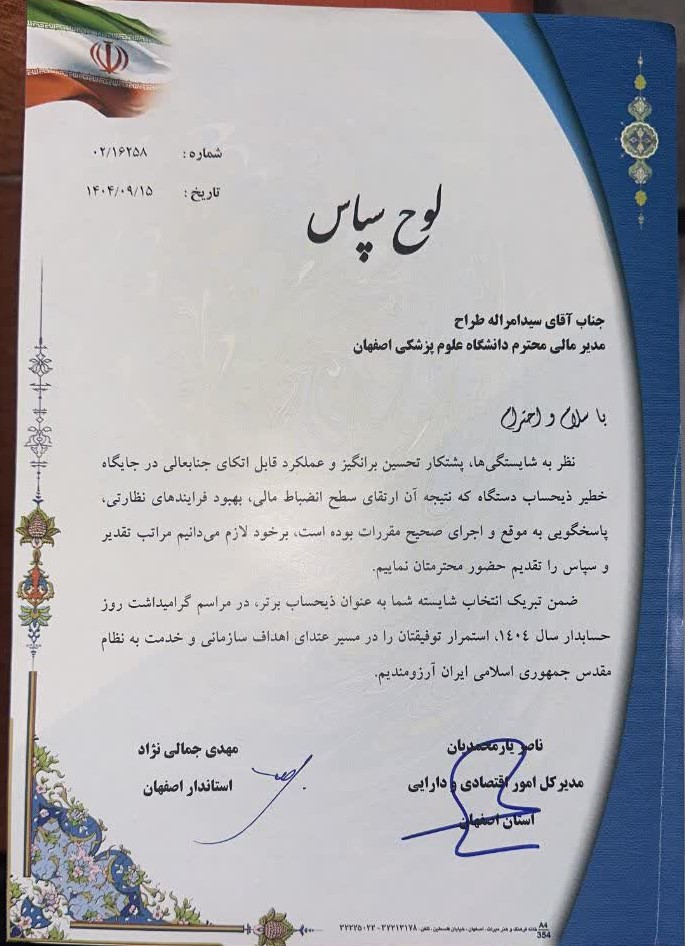 شماره : ۰۲/۱۶۲۵۸
تاریخ : ۱۴۰۴/۰۹/۱۵
لوح سپاس
جناب آقای سیدامراله طراح
مدیر مالی محترم دانشگاه علوم پزشکی اصفهان
با سلام و احترام
نظر به شایستگی‌ها، پشتکار تحسین برانگیز و عملکرد قابل اتکای جنابعالی در جایگاه
خطیر ذیحساب دستگاه که نتیجه آن ارتقای سطح انضباط مالی، بهبود فرایندهای نظارتی،
پاسخگویی به موقع و اجرای صحیح مقررات بوده است، برخود لازم می‌دانیم مراتب تقدیر
و سپاس را تقدیم حضور محترمتان نماییم.
ضمن تبریک انتخاب شایسته شما به عنوان ذیحساب برتر، در مراسم گرامیداشت روز
حسابدار سال ۱۴۰۴، استمرار توفیقتان را در مسیر عتدای اهداف سازمانی و خدمت به نظام
مقدس جمهوری اسلامی ایران آرزومندیم.
ناصر یارمحمدیان
مدیرکل امور اقتصادی و دارایی
استان اصفهان
مهدی جمالی نژاد
استاندار اصفهان
A4
354
خانه فرهنگ و هنر میراث - اصفهان، خیابان فلسطین، تلفن: ۳۲۲۱۳۱۷۸ - ۳۲۲۲۵۰۲۲